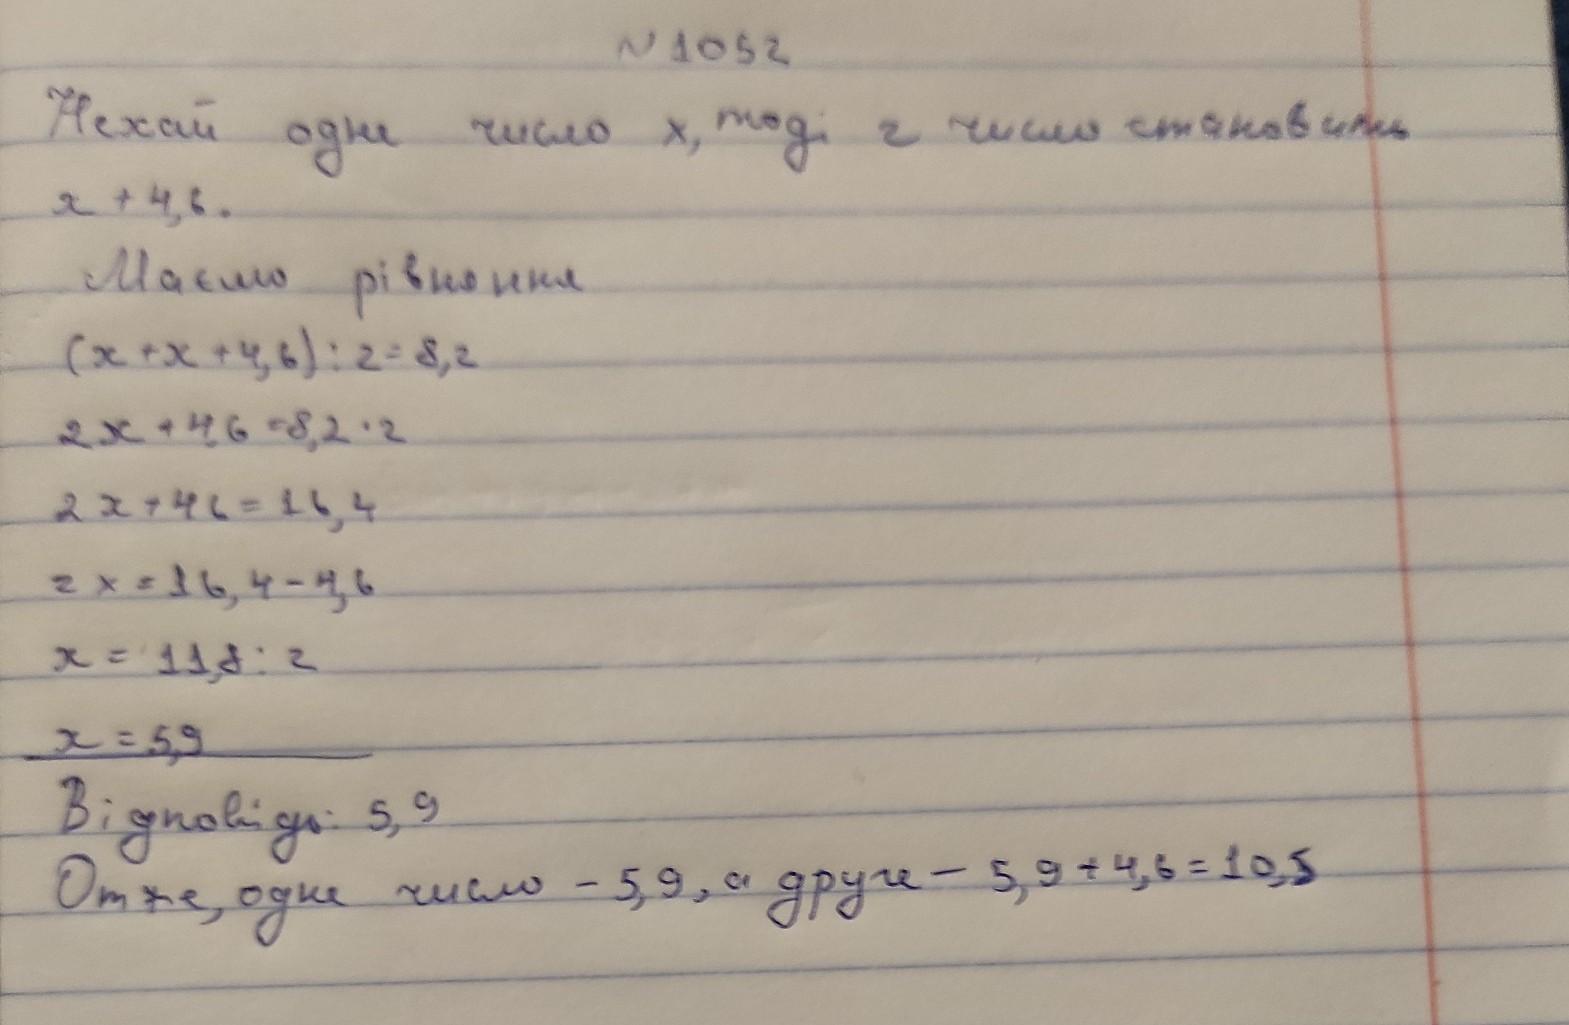 N 1052
Нехай одне число x, тоді 2 число становить
x + 4,6.
Маємо рівняння
(x + x + 4,6) : 2 = 8,2
2x + 4,6 = 8,2 · 2
2x + 4,6 = 16,4
2x = 16,4 - 4,6
x = 11,8 : 2
x = 5,9
Відповідь: 5,9
Отже, одне число - 5,9, а друге - 5,9 + 4,6 = 10,5